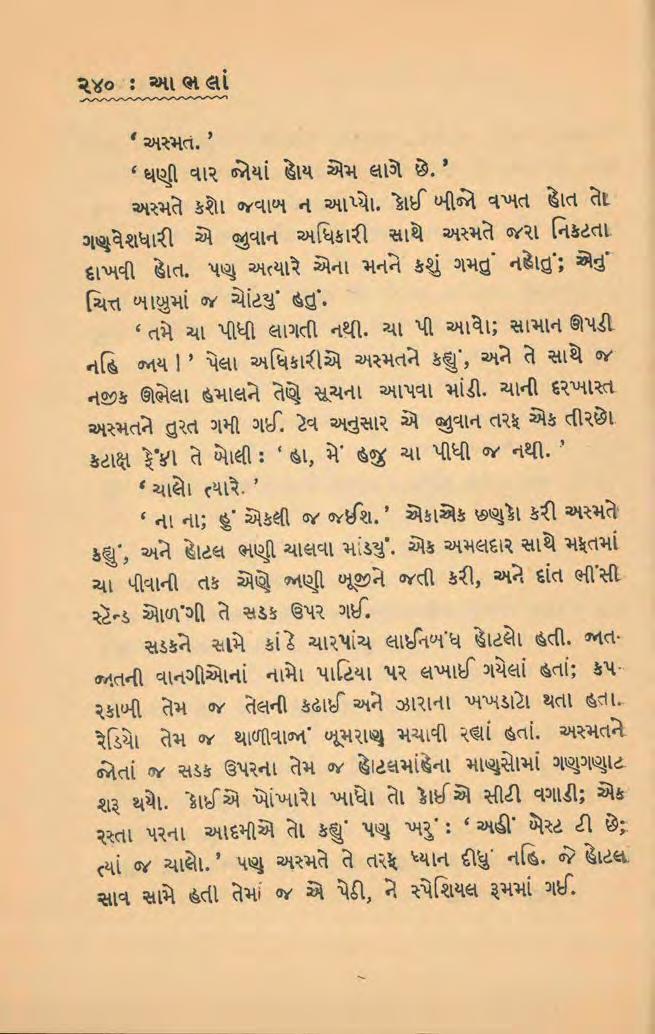 ૨૪૦ : આભલાં
‘ અસ્મત. ’
‘ ઘણી વાર જોયાં હોય એમ લાગે છે. ’
અસ્મતે કશો જવાબ ન આપ્યો. કોઈ બીજો વખત હોત તો
ગણવેશધારી એ જુવાન અધિકારી સાથે અસ્મતે જરા નિકટતા
દાખવી હોત. પણ અત્યારે એના મનને કશું ગમતું નહોતું; એનું
ચિત્ત બાબુમાં જ ચોંટ્યું હતું.
‘ તમે ચા પીધી લાગતી નથી. ચા પી આવો; સામાન ઊપડી
નહિ જાય ! ’ પેલા અધિકારીએ અસ્મતને કહ્યું, અને તે સાથે જ
નજીક ઊભેલા હમાલને તેણે સૂચના આપવા માંડી. ચાની દરખાસ્ત
અસ્મતને તુરત ગમી ગઈ. ટેવ અનુસાર એ જુવાન તરફ એક તીરછો
કટાક્ષ ફેંકી તે બોલી : ‘ હા, મેં હજુ ચા પીધી જ નથી. ’
‘ ચાલો ત્યારે. ’
‘ ના ના; હું એકલી જ જઈશ. ’ એકાએક છણકો કરી અસ્મતે
કહ્યું, અને હોટલ ભણી ચાલવા માંડ્યું. એક અમલદાર સાથે મફતમાં
ચા પીવાની તક એણે જાણી બૂજીને જતી કરી, અને દાંત ભીંસી
સ્ટેન્ડ ઓળંગી તે સડક ઉપર ગઈ.
સડકને સામે કાંઠે ચારપાંચ લાઈનબંધ હોટલો હતી. જાત-
જાતની વાનગીઓનાં નામો પાટિયા પર લખાઈ ગયેલાં હતાં; કપ-
રકાબી તેમ જ તેલની કઢાઈ અને ઝારાના ખખડાટો થતા હતા.
રેડિયો તેમ જ થાળીવાજાં બૂમરાણ મચાવી રહ્યાં હતાં. અસ્મતને
જોતાં જ સડક ઉપરના તેમ જ હોટલમાંહેના માણસોમાં ગણગણાટ
શરૂ થયો. કોઈએ ખોંખારો ખાધો તો કોઈએ સીટી વગાડી; એક
રસ્તા પરના આદમીએ તો કહ્યું પણ ખરું : ‘ અહીં બેસ્ટ ટી છે;
ત્યાં જ ચાલો. ’ પણ અસ્મતે તે તરફ ધ્યાન દીધું નહિ. જે હોટલ
સાવ સામે હતી તેમાં જ એ પેઠી, ને સ્પેશિયલ રૂમમાં ગઈ.